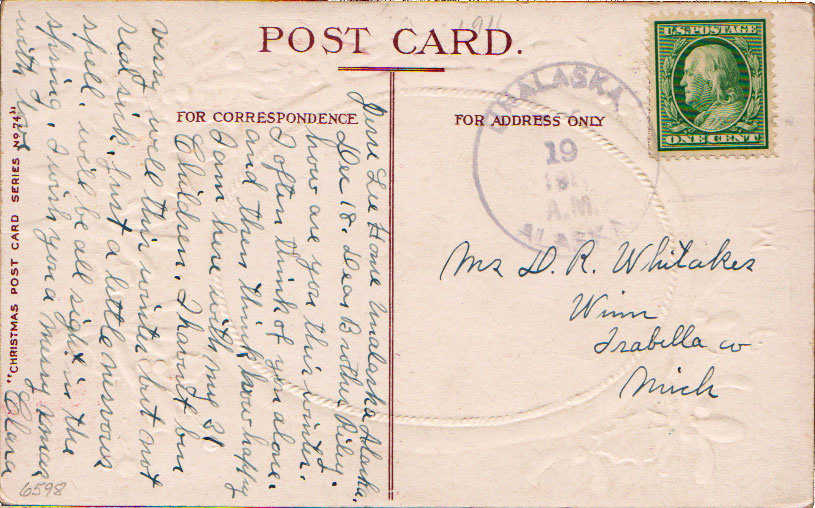 1911
POST CARD.
FOR CORRESPONDENCE
FOR ADDRESS ONLY
U.S. POSTAGE
ONE CENT
UNALASKA
19
191
A.M.
ALASKA
Jesse Lee Home Unalaska Alaska.
Dec 18. Dear Brother Riley.
how are you this winter.
I often think of you alone.
and then think how happy
I am here with my 31
Children. I havent bin
very well this winter but not
real sick. Just a little nervous
spell. will be all right in the
spring. I wish you a merry xmas
with love Clara
Mr D. R. Whitaker
Winn
Isabella co
Mich
"CHRISTMAS POST CARD SERIES No 74"
6598